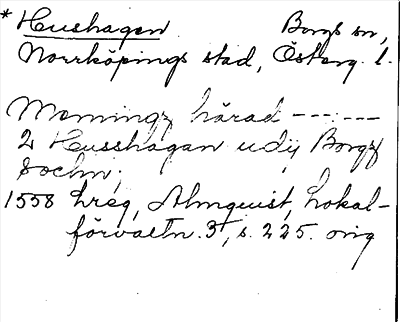 * Hushagen Borgs sn,
Norrköpings stad, Österg. l.
Memmingz härad -----
2 Husshagan udij Borgz
sochn,
1558 hreg, Almquist, Lokal-
förvaltn. 3, s. 225. orig